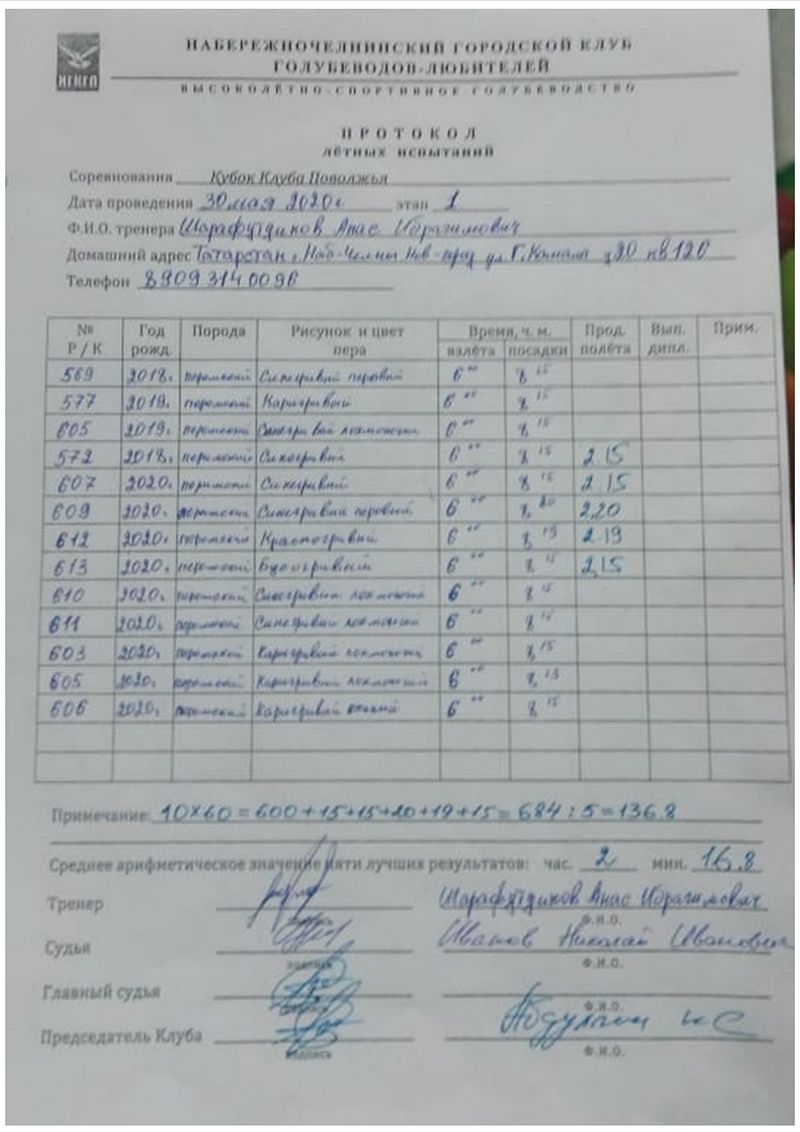 НГКГЛ
НАБЕРЕЖНОЧЕЛНИНСКИЙ ГОРОДСКОЙ КЛУБ
ГОЛУБЕВОДОВ-ЛЮБИТЕЛЕЙ
ВЫСОКОЛЁТНО-СПОРТИВНОЕ ГОЛУБЕВОДСТВО
ПРОТОКОЛ
лётных испытаний
Соревнования Кубок Клуба Поволжья
Дата проведения 30 мая 2020г этап 1
Ф.И.О. тренера Шарафутдинов Анас Ибрагимович
Домашний адрес Татарстан г. Наб-Челны ул Г. Камала д20 кв 126
Телефон 89093140096
№ Р / К Год рожд. Порода Рисунок и цвет пера Время, ч. м. взлёта посадки Прод. полёта Вып. дипл. Прим.
569 2018г пермский Синегривый 6 00 8 15
577 2019г пермский Карыгривый 6 00 8 15
605 2019г пермский Синегривый лохмоногий 6 00 8 15
572 2018г пермский Синегривый 6 00 8 15 2.15
607 2020г пермский Синегривый 6 00 8 15 2.15
609 2020г пермский Синегривый 6 00 8 20 2.20
612 2020г пермский Красногривый 6 00 8 19 2.19
613 2020г пермский 6 00 8 15 2.15
610 2020г пермский Синегривый лохмоногий 6 00 8 15
611 2020г пермский Синегривый лохмоногий 6 00 8 15
603 2020г пермский Карыгривый лохмоногий 6 00 8 15
605 2020г пермский Карыгривый лохмоногий 6 00 8
606 2020г пермский Карыгривый 6 00 8 15
Примечание: 10×60=600+15+15+20+19+15=684:5=136.8
Среднее арифметическое значение пяти лучших результатов: час. 2 мин. 16.8
Тренер Шарафутдинов Анас Ибрагимович
Ф.И.О.
Судья Иванов Николай Иванович
подпись Ф.И.О.
Главный судья
Ф.И.О.
Председатель Клуба
подпись Ф.И.О.